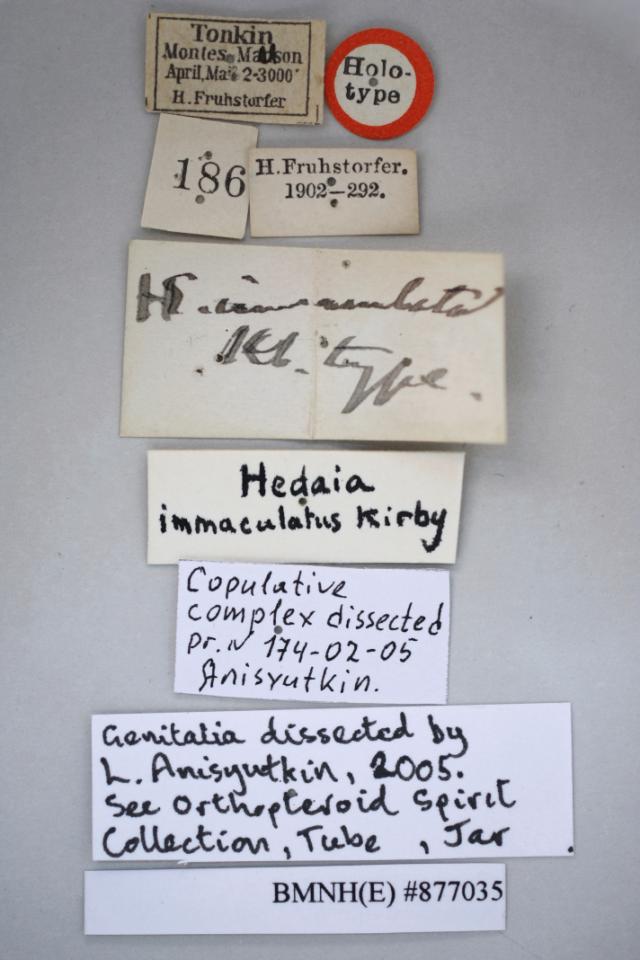 Tonkin
Montes Mauson
April, Mai 2-3000'
H. Fruhstorfer
Holo-
type
186
H. Fruhstorfer.
1902–292.
H. immaculata
Kb. type.
Hedaia
immaculatus Kirby
Copulative
complex dissected
pr. N 174-02-05
Anisyutkin.
Genitalia dissected by
L. Anisyutkin, 2005.
See Orthopteroid Spirit
Collection, Tube , Jar .
BMNH(E) #877035